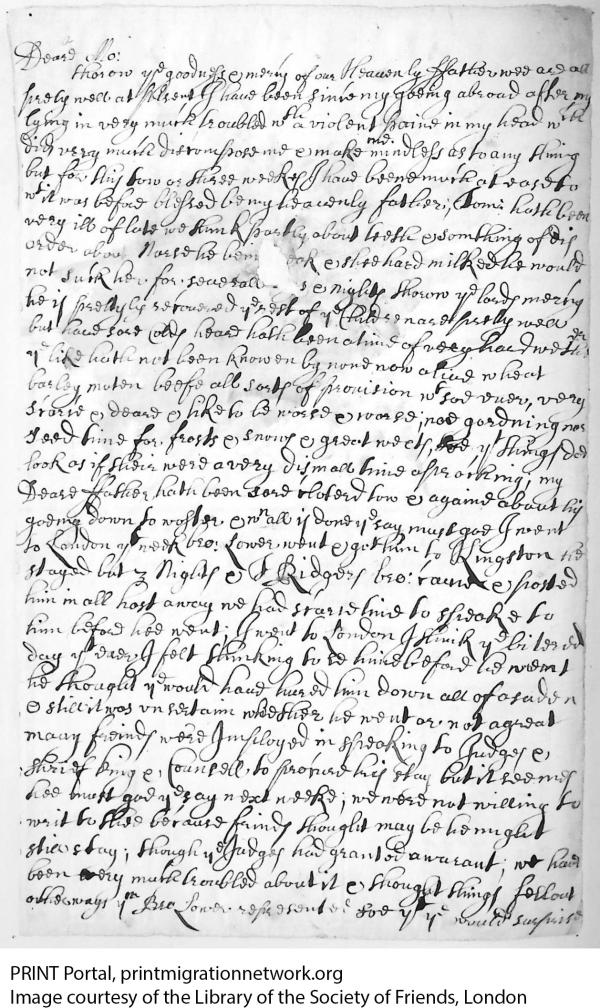 Deare Mo:
thorow ye goodness & mercy of our Heavenly ffather wee are all
prety well at present I have been since my goeing abroad after my
lying in very much troubled wth a violent paine in my head wch
did very much discompose me & make me mindless as to any thing
but for this tow or three weekes I have beene much at ease to
wt it was before blessed be my heavenly father; Tom: hath been
very ill of late we think partly about teeth & somthing of dis
order about Nurse he being & shee hard milked he would
not suck her for severall & nights thorow ye lords mercy
he is prettyly recovered ye rest of ye Children are pretty well
but have sore colds heare hath been a time of very hard wether
ye like hath not been knowen by none now alive wheat
barley muten beefe all sorts of provision wt soe ever, very
scarse & deare & like to be worse & worse; noe gardning nor
seed time for frosts & snows & great weets, soe yt things doe
look as if their were a very dismall time aproching; my
Deare ffather hath been sore tow & againe about his
goeing down to woster & wn all is done ye say must goe I went
to London yt week bro: Lower went & got him to Kingston he
stayed but 2 Nights & T Ridgers bro: came & posted
him in all hast away we had scarse time to speake to
him before hee went; I went to London I think ye biterest
day yt ever I felt thinking to se him before he went
he thought ye would have hured him down all of a suden
& still it was unsertain whether he went or not a great
many freinds were Imployed in speaking to Judges &
Shrief King & Counsell to procure his stay but it seemes
hee must goe ye say next weeke; we were not willing to
writ to thee because frinds thought may be he might
still stay; though ye Judges had granted a warant; we have
been very much troubled about it & thought things fell out
otherways yn Bro Lower represented soe yt ye would surprise
PRINT Portal, printmigrationnetwork.org
Image courtesy of the Library of the Society of Friends, London